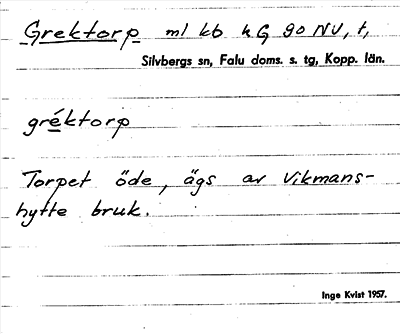 Grektorp ml kb h G 90 NV, t,
Silvbergs sn, Falu doms. s. tg, Kopp. län.
gréktorp
Torpet öde, ägs av Vikmans-
hytte bruk.
Inge Kvist 1957.